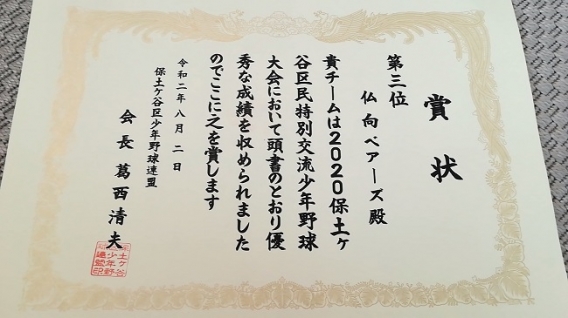 賞状
第三位
仏向ベアーズ殿
貴チームは2020保土ヶ
谷区民特別交流少年野球
大会において頭書のとおり優
秀な成績を収められました
のでここに之を賞します
令和二年八月二日
保土ヶ谷区少年野球連盟
会長 葛西清夫